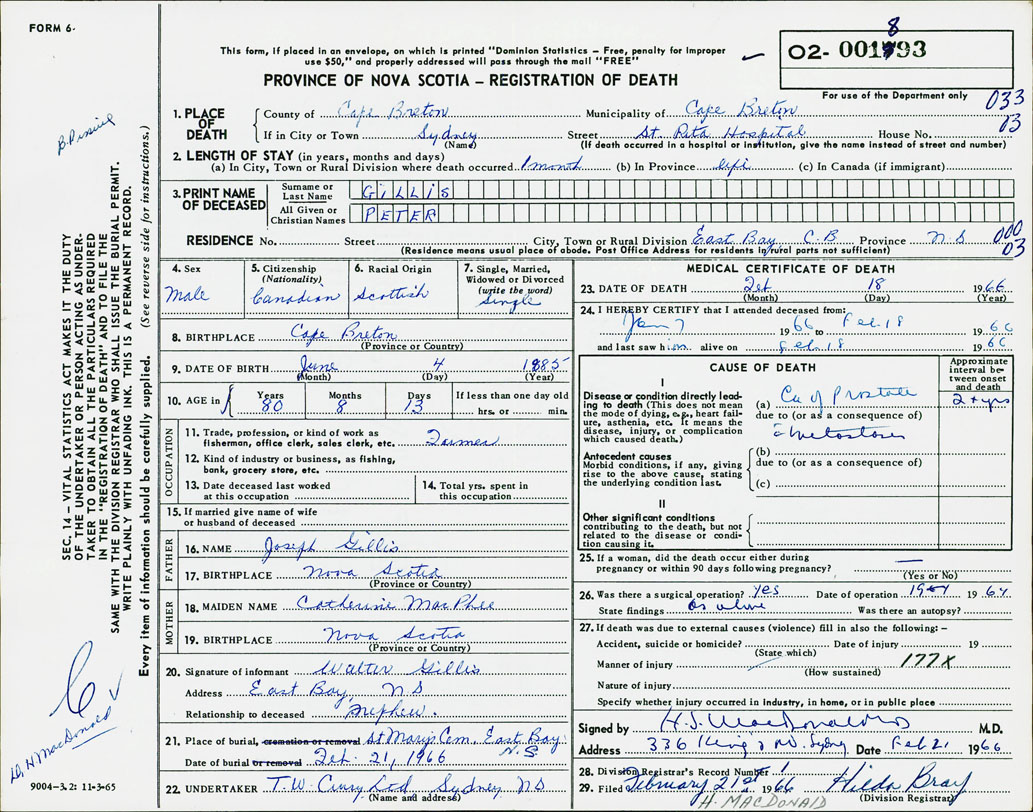 FORM 6.
This form, if placed in an envelope, on which is printed "Dominion Statistics – Free, penalty for improper
use $50," and properly addressed will pass through the mail "FREE"
PROVINCE OF NOVA SCOTIA – REGISTRATION OF DEATH
8
O2- 001793
For use of the Department only
033
03
1. PLACE OF DEATH
County of Cape Breton Municipality of Cape Breton
If in City or Town Sydney Street St. Rita Hospital House No.
(Name) (If death occurred in a hospital or institution, give the name instead of street and number)
2. LENGTH OF STAY (in years, months and days)
(a) In City, Town or Rural Division where death occurred 1 month (b) In Province life (c) In Canada (if immigrant)
3. PRINT NAME OF DECEASED
Surname or Last Name GILLIS
All Given or Christian Names PETER
RESIDENCE No. Street City, Town or Rural Division East Bay C.B. Province N S
000
03
(Residence means usual place of abode. Post Office Address for residents in rural parts not sufficient)
4. Sex
Male
5. Citizenship
(Nationality)
Canadian
6. Racial Origin
Scottish
7. Single, Married,
Widowed or Divorced
(write the word)
Single
8. BIRTHPLACE Cape Breton
(Province or Country)
9. DATE OF BIRTH June 4 1885
(Month) (Day) (Year)
10. AGE in
Years Months Days If less than one day old
80 8 13 hrs. or min.
OCCUPATION
11. Trade, profession, or kind of work as
fisherman, office clerk, sales clerk, etc. Farmer
12. Kind of industry or business, as fishing,
bank, grocery store, etc.
13. Date deceased last worked
at this occupation
14. Total yrs. spent in
this occupation
15. If married give name of wife
or husband of deceased
FATHER
16. NAME Joseph Gillis
17. BIRTHPLACE Nova Scotia
(Province or Country)
MOTHER
18. MAIDEN NAME Catherine MacPhee
19. BIRTHPLACE Nova Scotia
(Province or Country)
20. Signature of informant Walter Gillis
Address East Bay, N S
Relationship to deceased nephew.
21. Place of burial, cremation or removal St Marys Cem. East Bay
N.S
Date of burial or removal Feb. 21, 1966
22. UNDERTAKER T.W. Curry Ltd Sydney N S
(Name and address)
MEDICAL CERTIFICATE OF DEATH
23. DATE OF DEATH Feb 18 1966
(Month) (Day) (Year)
24. I HEREBY CERTIFY that I attended deceased from:
Jan 7 1966 to Feb. 18 1966
and last saw him alive on Feb. 18 1966
CAUSE OF DEATH
Approximate interval between onset and death
I
Disease or condition directly leading
to death (This does not mean
the mode of dying, e.g., heart failure,
asthenia, etc. It means the
disease, injury, or complication
which caused death.)
(a) Ca of Prostate 2+ yrs
due to (or as a consequence of)
c̄ metastases
Antecedent causes
Morbid conditions, if any, giving
rise to the above cause, stating
the underlying condition last.
(b)
due to (or as a consequence of)
(c)
II
Other significant conditions
contributing to the death, but not
related to the disease or condition
causing it.
25. If a woman, did the death occur either during
pregnancy or within 90 days following pregnancy? —
(Yes or No)
26. Was there a surgical operation? yes Date of operation 1964 1964
State findings As above Was there an autopsy?
27. If death was due to external causes (violence) fill in also the following:–
Accident, suicide or homicide? Date of injury 19
(State which)
Manner of injury 177X
(How sustained)
Nature of injury
Specify whether injury occurred in industry, in home, or in public place
Signed by H.J. MacDonald M.D.
Address 336 King's Rd. Sydney Date Feb 21 1966
28. Division Registrar's Record Number 1
29. Filed February 21st 1966 Hilda Bray
(Division Registrar)
H. MACDONALD
SEC. 14 – VITAL STATISTICS ACT MAKES IT THE DUTY
OF THE UNDERTAKER OR PERSON ACTING AS UNDERTAKER
TO OBTAIN ALL THE PARTICULARS REQUIRED
IN THE "REGISTRATION OF DEATH" AND TO FILE THE
SAME WITH THE DIVISION REGISTRAR WHO SHALL ISSUE THE BURIAL PERMIT.
WRITE PLAINLY WITH UNFADING INK. THIS IS A PERMANENT RECORD.
Every item of information should be carefully supplied. (See reverse side for instructions.)
C
Dr. H MacDonald
9004-3.2: 11-3-65